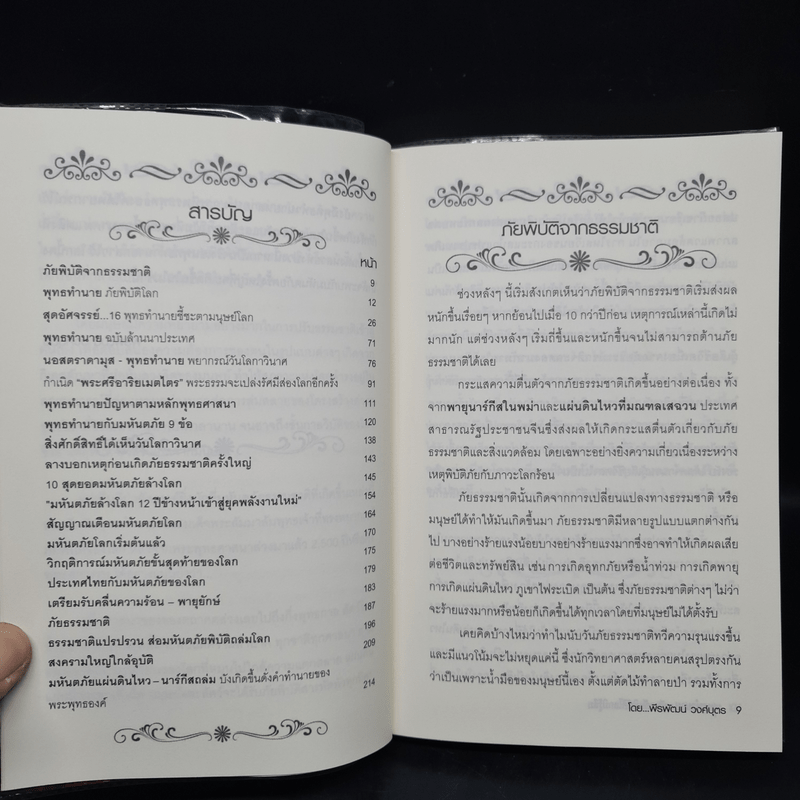 สารบัญ
หน้า
ภัยพิบัติจากธรรมชาติ 9
พุทธทำนาย ภัยพิบัติโลก 12
สุดอัศจรรย์...16 พุทธทำนายชี้ชะตามนุษย์โลก 26
พุทธทำนาย ฉบับล้านนาประเทศ 71
นอสตราดามุส - พุทธทำนาย พยากรณ์วันโลกาวินาศ 76
กำเนิด "พระศรีอาริยเมตไตร" พระธรรมจะเปล่งรัศมีส่องโลกอีกครั้ง 91
พุทธทำนายปัญหาตามหลักพุทธศาสนา 111
พุทธทำนายกับมหันตภัย 9 ข้อ 120
สิ่งศักดิ์สิทธิ์ได้เห็นวันโลกาวินาศ 138
ลางบอกเหตุก่อนเกิดภัยธรรมชาติครั้งใหญ่ 143
10 สุดยอดมหันตภัยล้างโลก 145
"มหันตภัยล้างโลก 12 ปีข้างหน้าเข้าสู่ยุคพลังงานใหม่" 154
สัญญาณเตือนมหันตภัยโลก 164
มหันตภัยโลกเริ่มต้นแล้ว 170
วิกฤติการณ์มหันตภัยขั้นสุดท้ายของโลก 175
ประเทศไทยกับมหันตภัยของโลก 179
เตรียมรับคลื่นความร้อน – พายุยักษ์ 183
ภัยธรรมชาติ 187
ธรรมชาติแปรปรวน ส่อมหันตภัยพิบัติถล่มโลก 196
สงครามใหญ่ใกล้อุบัติ 209
มหันตภัยแผ่นดินไหว – นาร์กีสถล่ม บังเกิดขึ้นดั่งคำทำนายของ
พระพุทธองค์ 214
ภัยพิบัติจากธรรมชาติ
ช่วงหลังๆ นี้เริ่มสังเกตเห็นว่าภัยพิบัติจากธรรมชาติเริ่มส่งผล
หนักขึ้นเรื่อยๆ หากย้อนไปเมื่อ 10 กว่าปีก่อน เหตุการณ์เหล่านี้เกิดไม่
มากนัก แต่ช่วงหลังๆ เริ่มถี่ขึ้นและหนักขึ้นจนไม่สามารถต้านภัย
ธรรมชาติได้เลย
กระแสความตื่นตัวจากภัยธรรมชาติเกิดขึ้นอย่างต่อเนื่อง ทั้ง
จากพายุนาร์กีสในพม่าและแผ่นดินไหวที่มณฑลเสฉวน ประเทศ
สาธารณรัฐประชาชนจีนซึ่งส่งผลให้เกิดกระแสตื่นตัวเกี่ยวกับภัย
ธรรมชาติและสิ่งแวดล้อม โดยเฉพาะอย่างยิ่งความเกี่ยวเนื่องระหว่าง
เหตุพิบัติภัยกับภาวะโลกร้อน
ภัยธรรมชาตินั้นเกิดจากการเปลี่ยนแปลงทางธรรมชาติ หรือ
มนุษย์ได้ทำให้มันเกิดขึ้นมา ภัยธรรมชาติมีหลายรูปแบบแตกต่างกัน
ไป บางอย่างร้ายแรงน้อยบางอย่างร้ายแรงมากซึ่งอาจทำให้เกิดผลเสีย
ต่อชีวิตและทรัพย์สิน เช่น การเกิดอุทกภัยหรือน้ำท่วม การเกิดพายุ
การเกิดแผ่นดินไหว ภูเขาไฟระเบิด เป็นต้น ซึ่งภัยธรรมชาติต่างๆ ไม่ว่า
จะร้ายแรงมากหรือน้อยก็เกิดขึ้นได้ทุกเวลาโดยที่มนุษย์ไม่ได้ตั้งรับ
เคยคิดบ้างไหมว่าทำไมนับวันภัยธรรมชาติทวีความรุนแรงขึ้น
และมีแนวโน้มจะไม่หยุดแค่นี้ ซึ่งนักวิทยาศาสตร์หลายคนสรุปตรงกัน
ว่าเป็นเพราะน้ำมือของมนุษย์นี้เอง ตั้งแต่ตัดไม้ทำลายป่า รวมทั้งการ
โดย...พีรพัฒน์ วงศ์บุตร 9